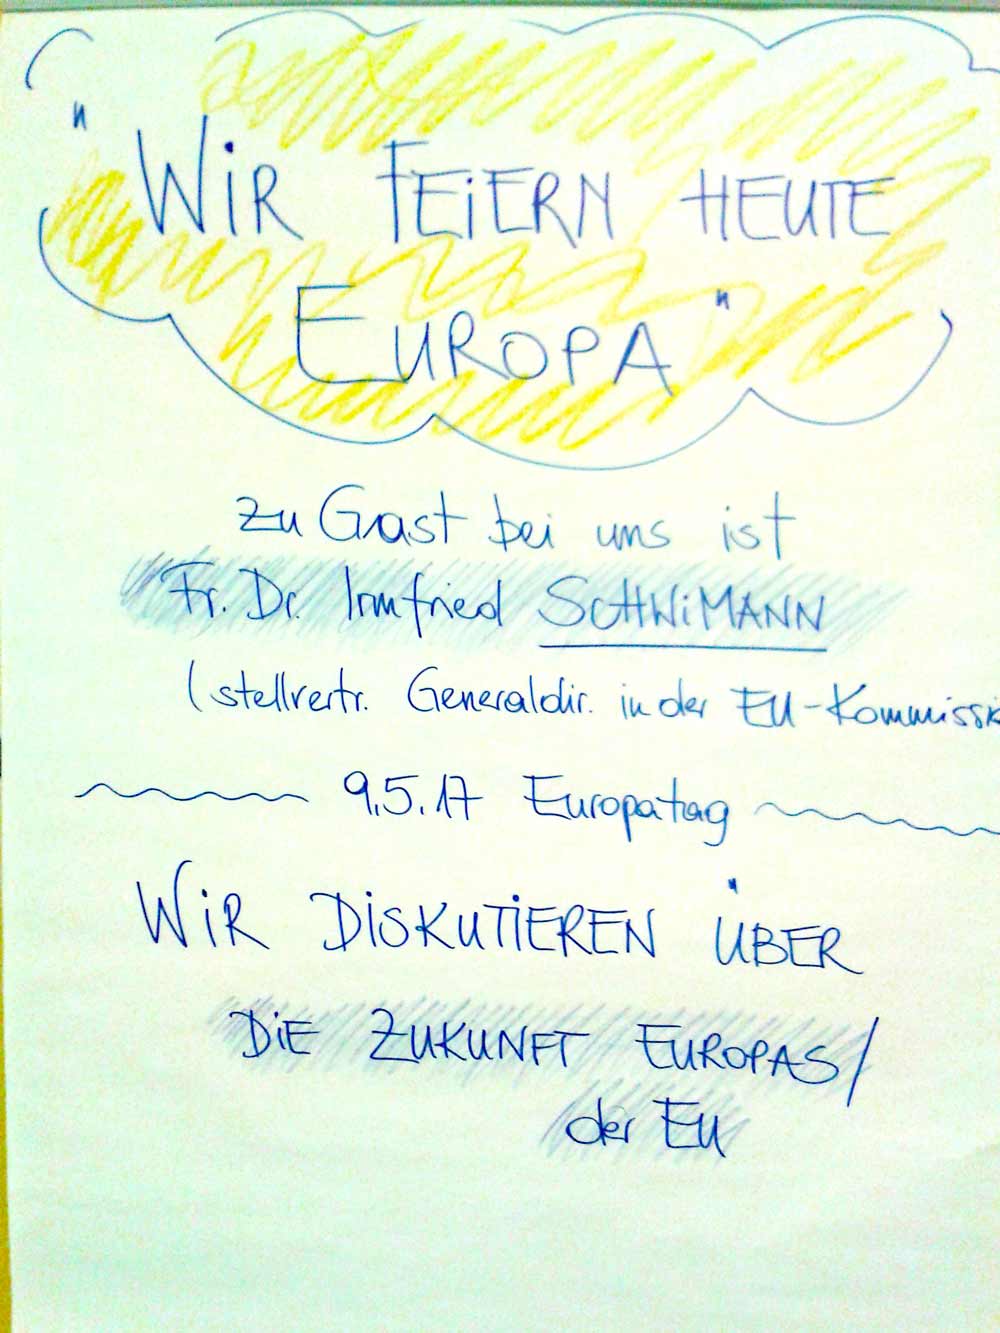 "WiR FEiERN HEUTE
EUROPA"
zu Gast bei uns ist
Fr. Dr. Irmfried SCHWiMANN
(stellvertr. Generaldir. in der EU-Kommissi
9.5.17 Europatag
WiR DiSKUTiEREN ÜBER
DiE ZUKUNFT EUROPAS/
der EU